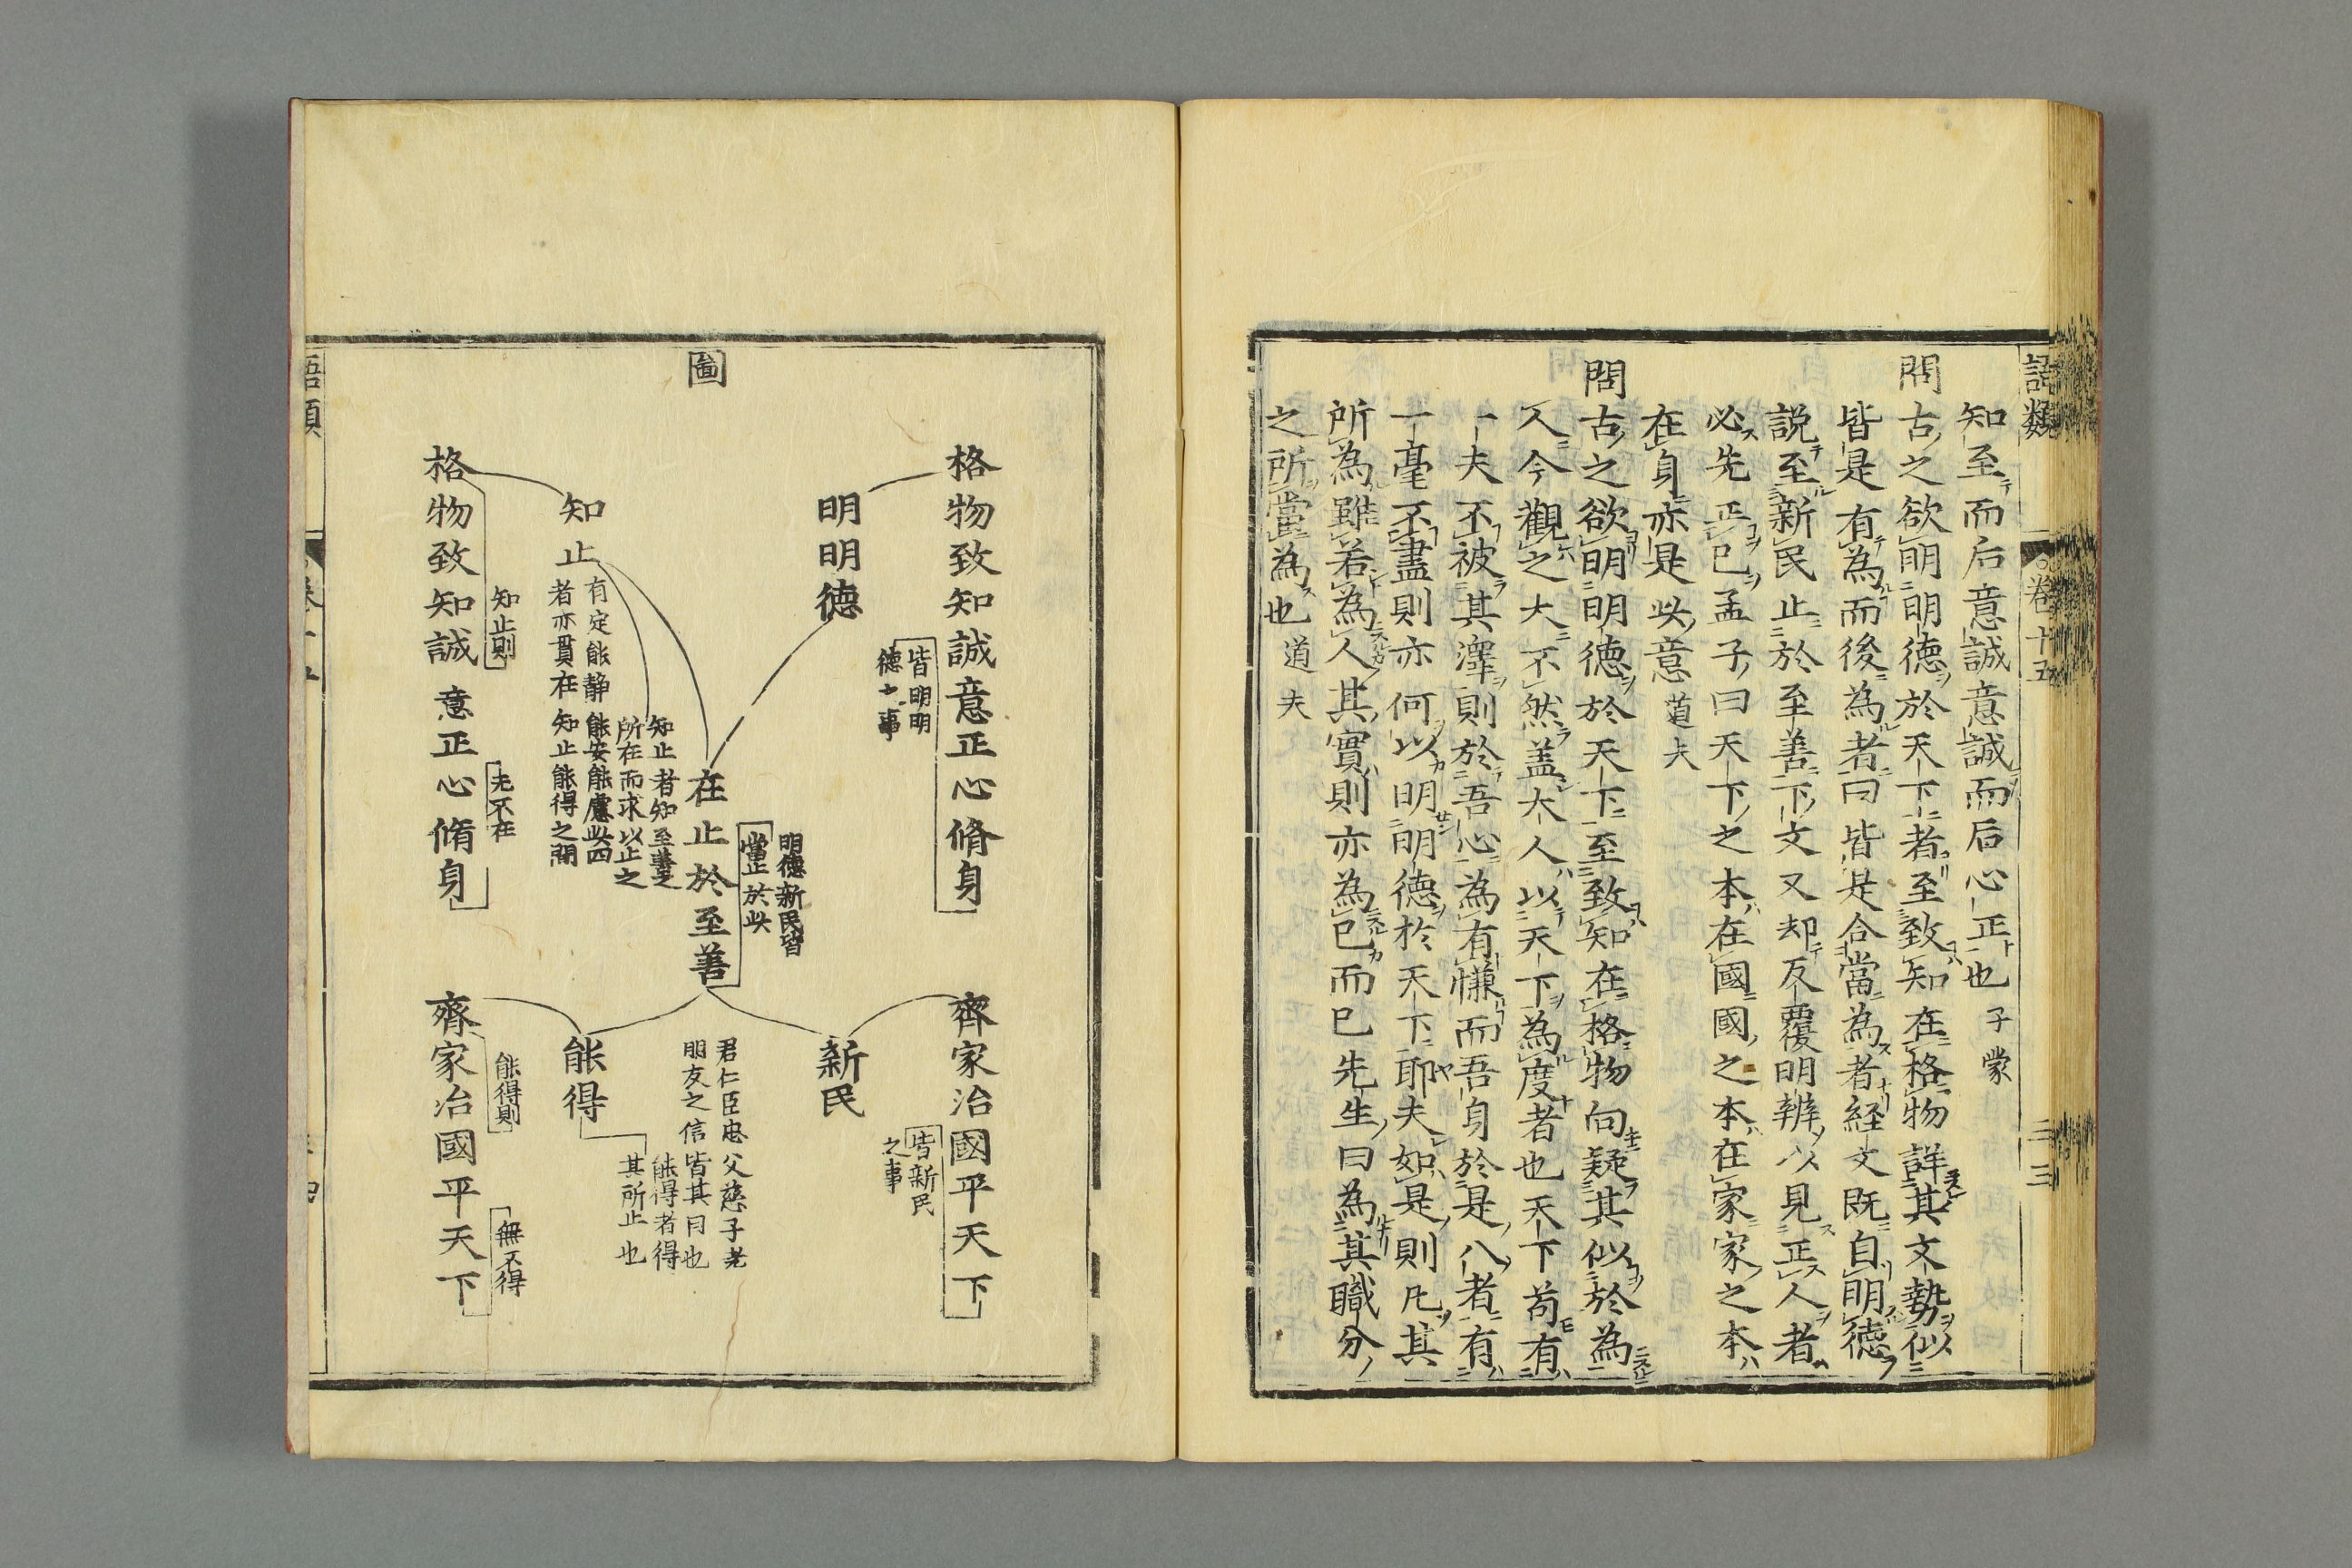 語類 卷十五 三三
知至而后意誠意誠而后心正也 子蒙
問古之欲明明德於天下者至致知在格物詳其文勢似
皆是有為而後為者曰皆是合當為者經文既自明德
説至新民止於至善下文又却反覆明辨以見正人者
必先正己孟子曰天下之本在國國之本在家家之本
在身亦是此意 道夫
問古之欲明明德於天下至致知在格物向疑其似於為
人今觀之大不然盖大人以天下為度者也天下苟有
一夫不被其澤則於吾心為有慊而吾身於是八者有
一毫不盡則亦何以明明德於天下耶夫如是則凡其
所為雖若為人其實則亦為己而已先生曰為其職分
之所當為也 道夫
圖
格物致知誠意正心脩身
皆明明
德之事
齊家治國平天下
皆新民
之事
明明德
新民
明德新民皆
當止於此
在止於至善
君仁臣忠父慈子孝
朋友之信皆其目也
知止者知至善之
所在而求以止之
能得者得
其所止也
知止
有定能静能安能慮此四
者亦貫在知止能得之間
能得
知止則
无不在
能得則
無不得
格物致知誠意正心脩身
齊家治國平天下
語類